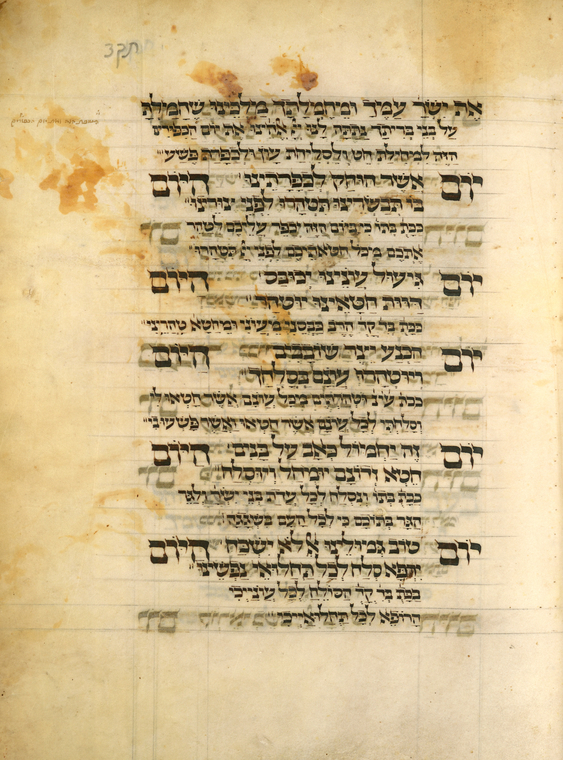 את ישר עמך ומחמלתך מלכנו שחמלת
על בני בריתך נתת לנו יי אהינו את יום הכפורים
הזה למחילת חטא ולסליחת עון ולכפרת פשע
יום אשר הוחק לכפרתינו היום
בו תבשרינו תטהרו לפני
ככת בתו כי ביום הזה יכפר עליכם לטהר
אתכם מכל חטאתיכם לפני יי תטהרו
יום גיעול עונינו היום
היות חטאינו יוטהר
ככת הרב כבסני מעוני ומחטאתי טהרני
יום הכנע יצר היום
ויוטהרו עונם בסלחך
ככת וטהרתים מכל עונם אשר חטאו לי
וסלחתי לכל עונם אשר חטאו ואשר פשעו
יום זה יחמול כאב על בנים היום
חטא זדונם יומחל ויוסלח
ככת בתו ונסלח לכל עדת בני ישר ולגר
הגר בתוכם כי לכל העם בשגגה
יום טוב גמולינו אל לא ישכח היום
סלח לכל תחלואי נפשינו
ככת הסולח לכל עוניכי
הרופא לכל תחלואיכי